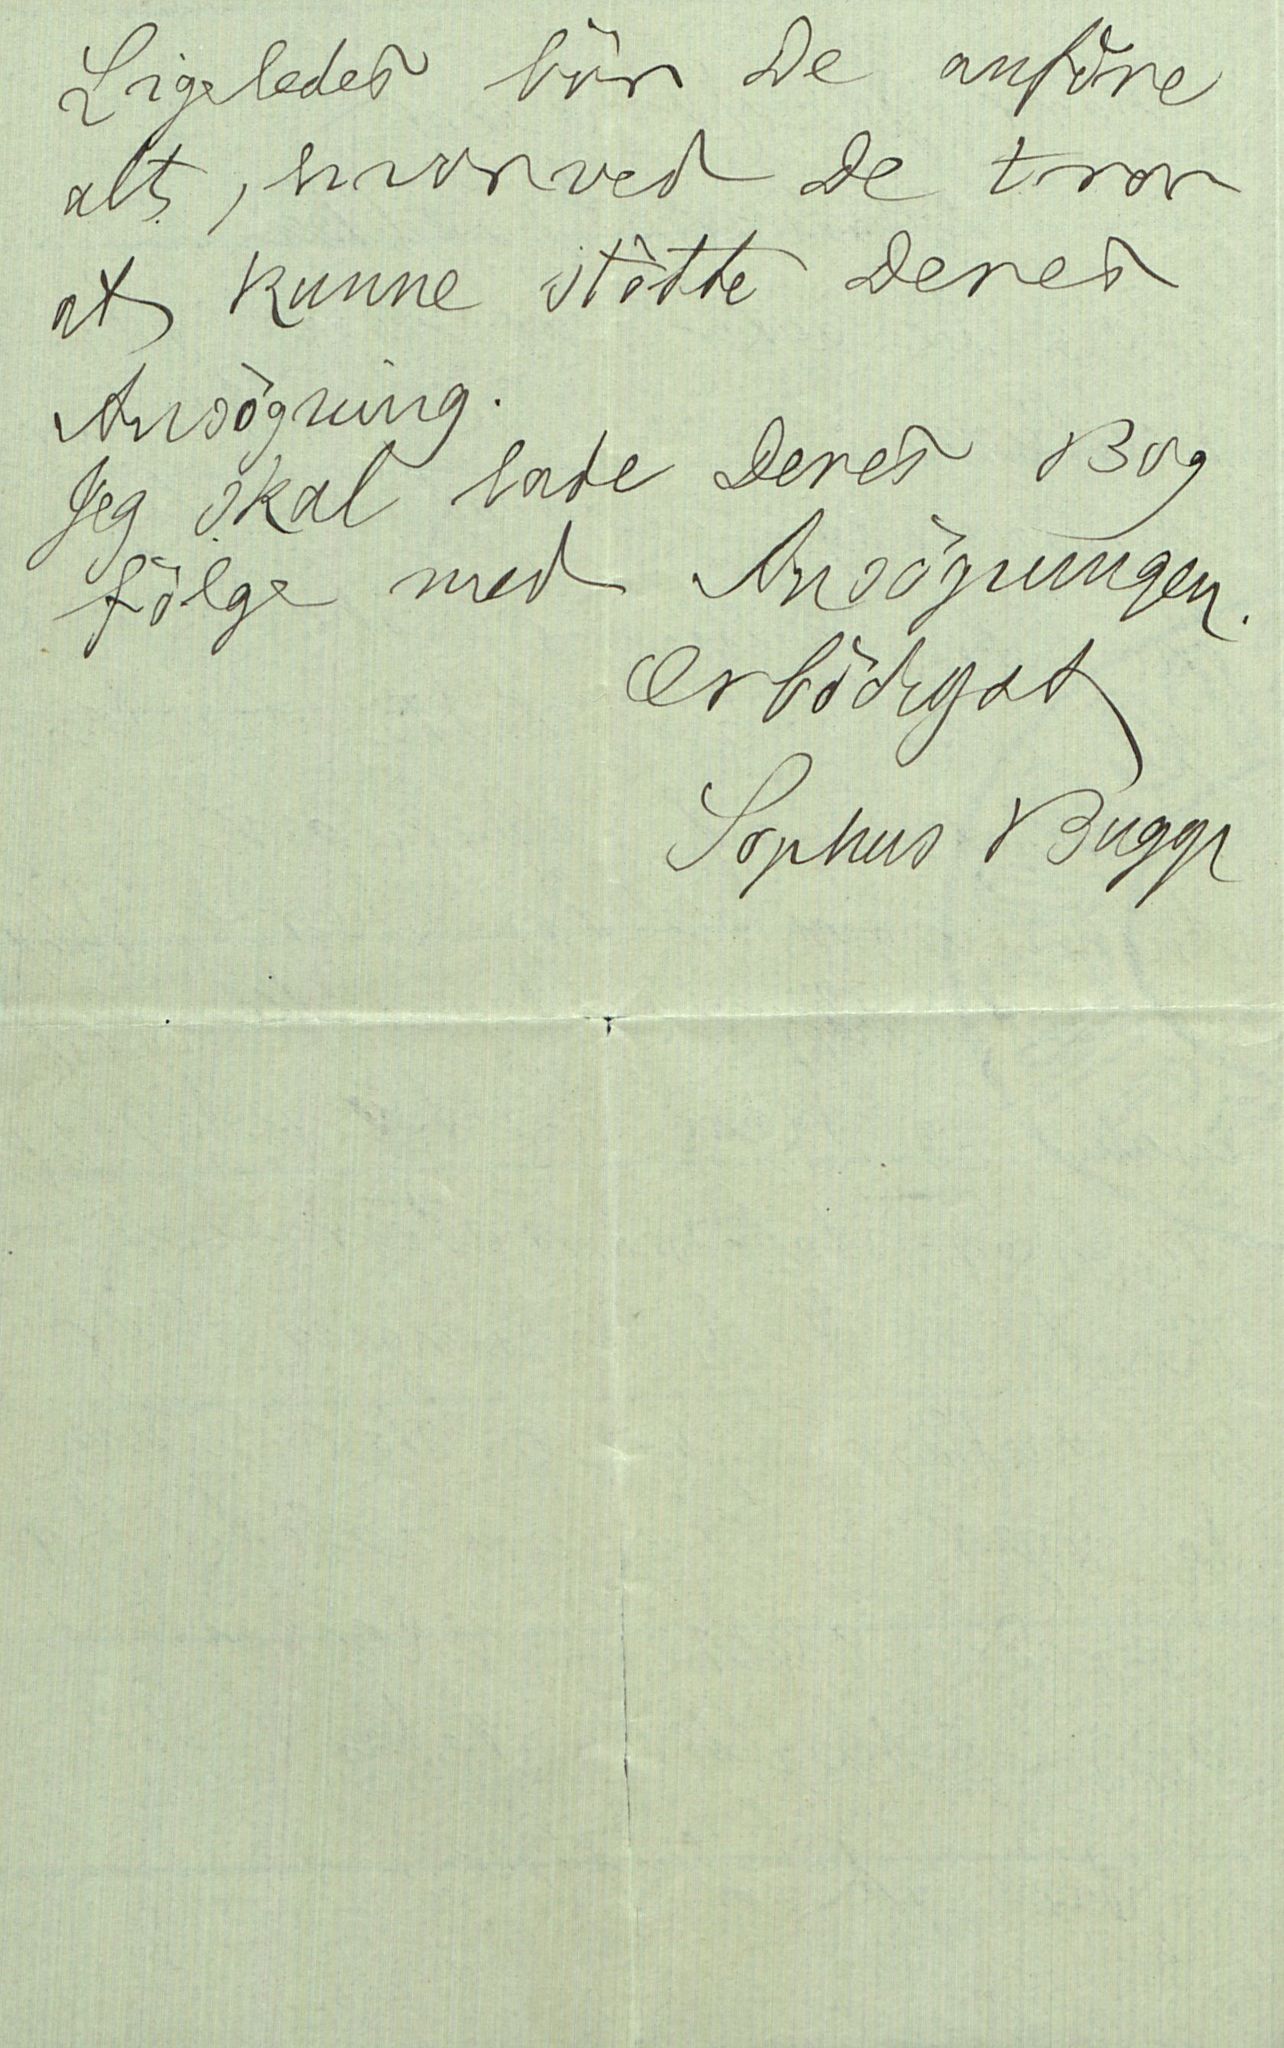 Ligeledes bör De anföre
alt, hvorved De tror
at kunne stötte Deres
Ansögning.
Jeg skal lade Deres Bog
fölge med Ansögningen.
Erbödigst
Sophus Bugge